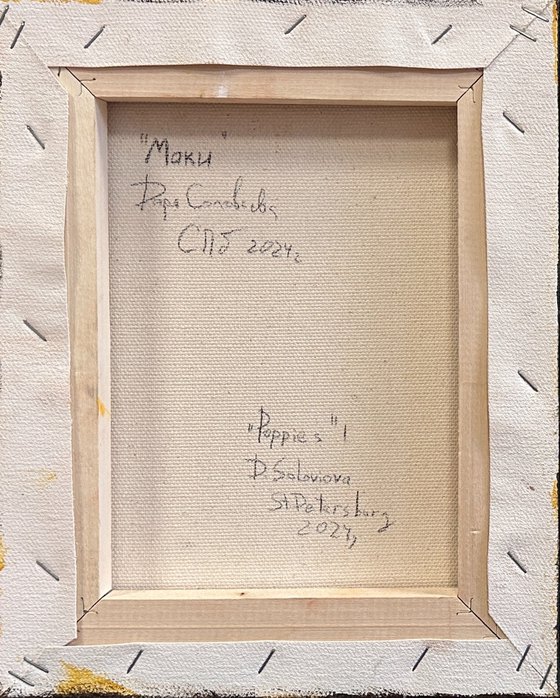 "Маки"
Дарь Соловьева
СПб 2024г
"Poppies"
D. Soloviova
St Petersburg
2024,